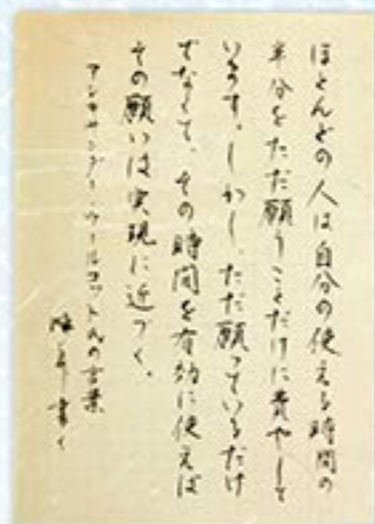 ほとんどの人は自分の使える時間の
半分をただ願うことだけに費やして
います。しかし、ただ願っているだけ
でなくて、その時間を有効に使えば
その願いは実現に近づく。
アレキサンダー・ウールコット氏の言葉
書く